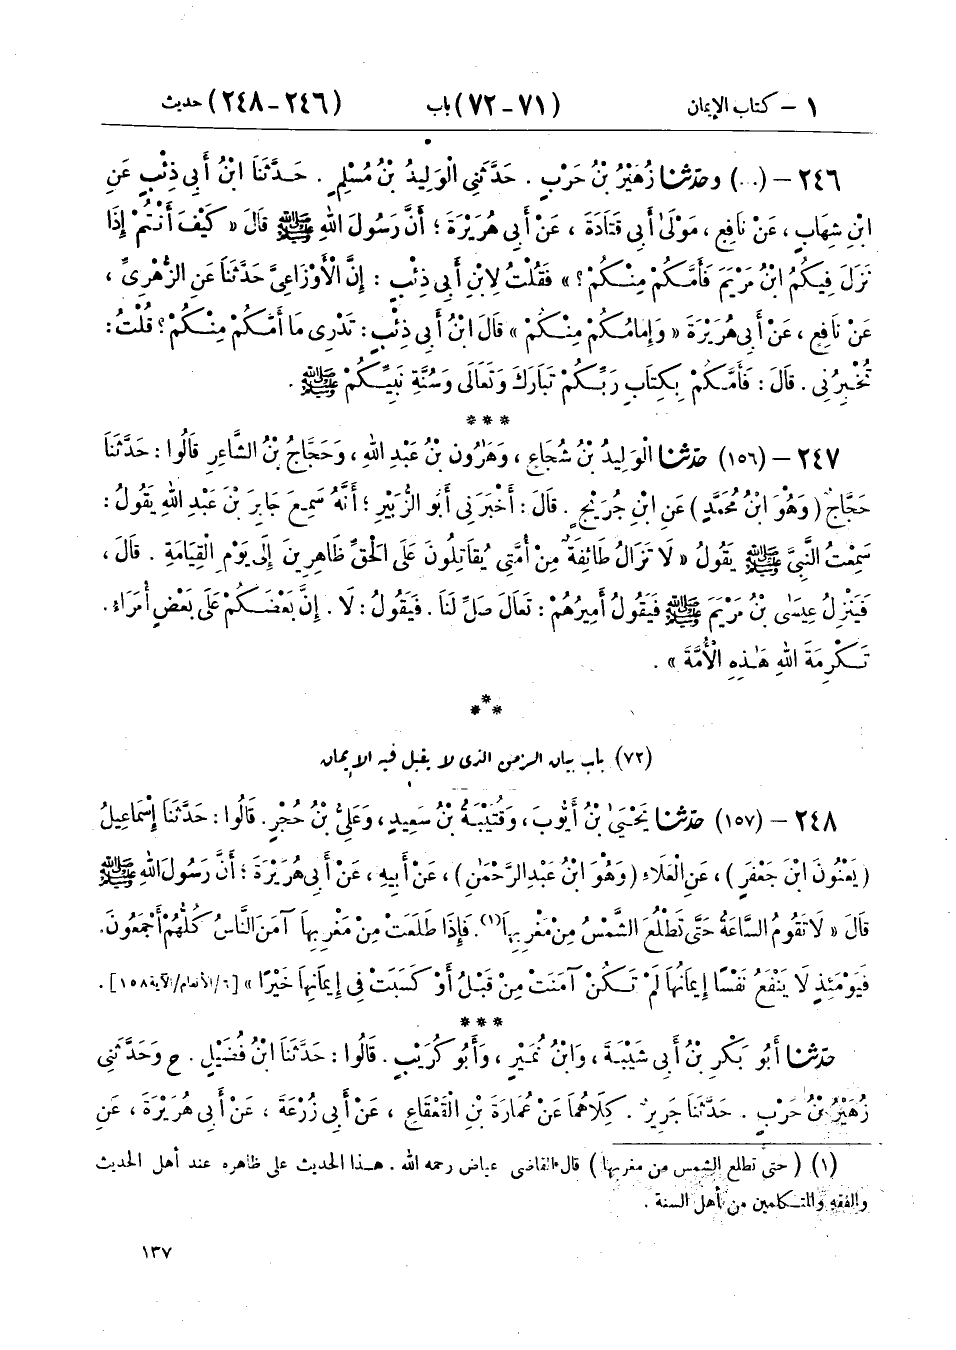 ١ – كتاب الإيمان (٧١-٧٢) باب (٢٤٦-٢٤٨) حديث
٢٤٦ – (...) وحدّثنا زُهَيْرُ بْنُ حَرْبٍ. حَدَّثَنِي الْوَلِيدُ بْنُ مُسْلِمٍ. حَدَّثَنَا ابْنُ أَبِي ذِئْبٍ عَنِ
ابْنِ شِهَابٍ، عَنْ نَافِعٍ، مَوْلَى أَبِي قَتَادَةَ، عَنْ أَبِي هُرَيْرَةَ؛ أَنَّ رَسُولَ اللهِ ﷺ قَالَ « كَيْفَ أَنْتُمْ إِذَا
نَزَلَ فِيكُمُ ابْنُ مَرْيَمَ فَأَمَّكُمْ مِنْكُمْ؟ » فَقُلْتُ لِابْنِ أَبِي ذِئْبٍ: إِنَّ الْأَوْزَاعِيَّ حَدَّثَنَا عَنِ الزُّهْرِيِّ،
عَنْ نَافِعٍ، عَنْ أَبِي هُرَيْرَةَ « وَإِمَامُكُمْ مِنْكُمْ » قَالَ ابْنُ أَبِي ذِئْبٍ: تَدْرِي مَا أَمَّكُمْ مِنْكُمْ؟ قُلْتُ:
تُخْبِرُنِي. قَالَ: فَأَمَّكُمْ بِكِتَابِ رَبِّكُمْ تَبَارَكَ وَتَعَالَى وَسُنَّةِ نَبِيِّكُمْ ﷺ.
***
٢٤٧ – (١٥٦) حدّثنا الْوَلِيدُ بْنُ شُجَاعٍ، وَهَرُونُ بْنُ عَبْدِ اللهِ، وَحَجَّاجُ بْنُ الشَّاعِرِ قَالُوا: حَدَّثَنَا
حَجَّاجٌ ( وَهُوَ ابْنُ مُحَمَّدٍ ) عَنِ ابْنِ جُرَيْجٍ. قَالَ: أَخْبَرَنِي أَبُو الزُّبَيْرِ؛ أَنَّهُ سَمِعَ جَابِرَ بْنَ عَبْدِ اللهِ يَقُولُ:
سَمِعْتُ النَّبِيَّ ﷺ يَقُولُ « لَا تَزَالُ طَائِفَةٌ مِنْ أُمَّتِي يُقَاتِلُونَ عَلَى الْحَقِّ ظَاهِرِينَ إِلَى يَوْمِ الْقِيَامَةِ. قَالَ،
فَيَنْزِلُ عِيسَى بْنُ مَرْيَمَ ﷺ فَيَقُولُ أَمِيرُهُمْ: تَعَالَ صَلِّ لَنَا. فَيَقُولُ: لَا. إِنَّ بَعْضَكُمْ عَلَى بَعْضٍ أُمَرَاءُ.
تَكْرِمَةَ اللهِ هَذِهِ الْأُمَّةَ ».
***
(٧٢) باب بيان الزمن الذى لا يقبل فيه الإيمان
٢٤٨ – (١٥٧) حدّثنا يَحْيَى بْنُ أَيُّوبَ، وَقُتَيْبَةُ بْنُ سَعِيدٍ، وَعَلِيُّ بْنُ حُجْرٍ. قَالُوا: حَدَّثَنَا إِسْمَاعِيلُ
( يَعْنُونَ ابْنَ جَعْفَرٍ )، عَنِ الْعَلَاءِ ( وَهُوَ ابْنُ عَبْدِ الرَّحْمَنِ )، عَنْ أَبِيهِ، عَنْ أَبِي هُرَيْرَةَ؛ أَنَّ رَسُولَ اللهِ ﷺ
قَالَ « لَا تَقُومُ السَّاعَةُ حَتَّى تَطْلُعَ الشَّمْسُ مِنْ مَغْرِبِهَا (١). فَإِذَا طَلَعَتْ مِنْ مَغْرِبِهَا آمَنَ النَّاسُ كُلُّهُمْ أَجْمَعُونَ.
فَيَوْمَئِذٍ لَا يَنْفَعُ نَفْسًا إِيمَانُهَا لَمْ تَكُنْ آمَنَتْ مِنْ قَبْلُ أَوْ كَسَبَتْ فِي إِيمَانِهَا خَيْرًا » [٦/الأنعام/الآية ١٥٨].
***
حدّثنا أَبُو بَكْرِ بْنُ أَبِي شَيْبَةَ، وَابْنُ نُمَيْرٍ، وَأَبُو كُرَيْبٍ. قَالُوا: حَدَّثَنَا ابْنُ فُضَيْلٍ. ح وَحَدَّثَنِي
زُهَيْرُ بْنُ حَرْبٍ. حَدَّثَنَا جَرِيرٌ. كِلَاهُمَا عَنْ عُمَارَةَ بْنِ الْقَعْقَاعِ، عَنْ أَبِي زُرْعَةَ، عَنْ أَبِي هُرَيْرَةَ، عَنِ
(١) ( حتى تطلع الشمس من مغربها ) قال القاضى عياض رحمه الله. هذا الحديث على ظاهره عند أهل الحديث
والفقه والمتكلمين من أهل السنة.
١٣٧